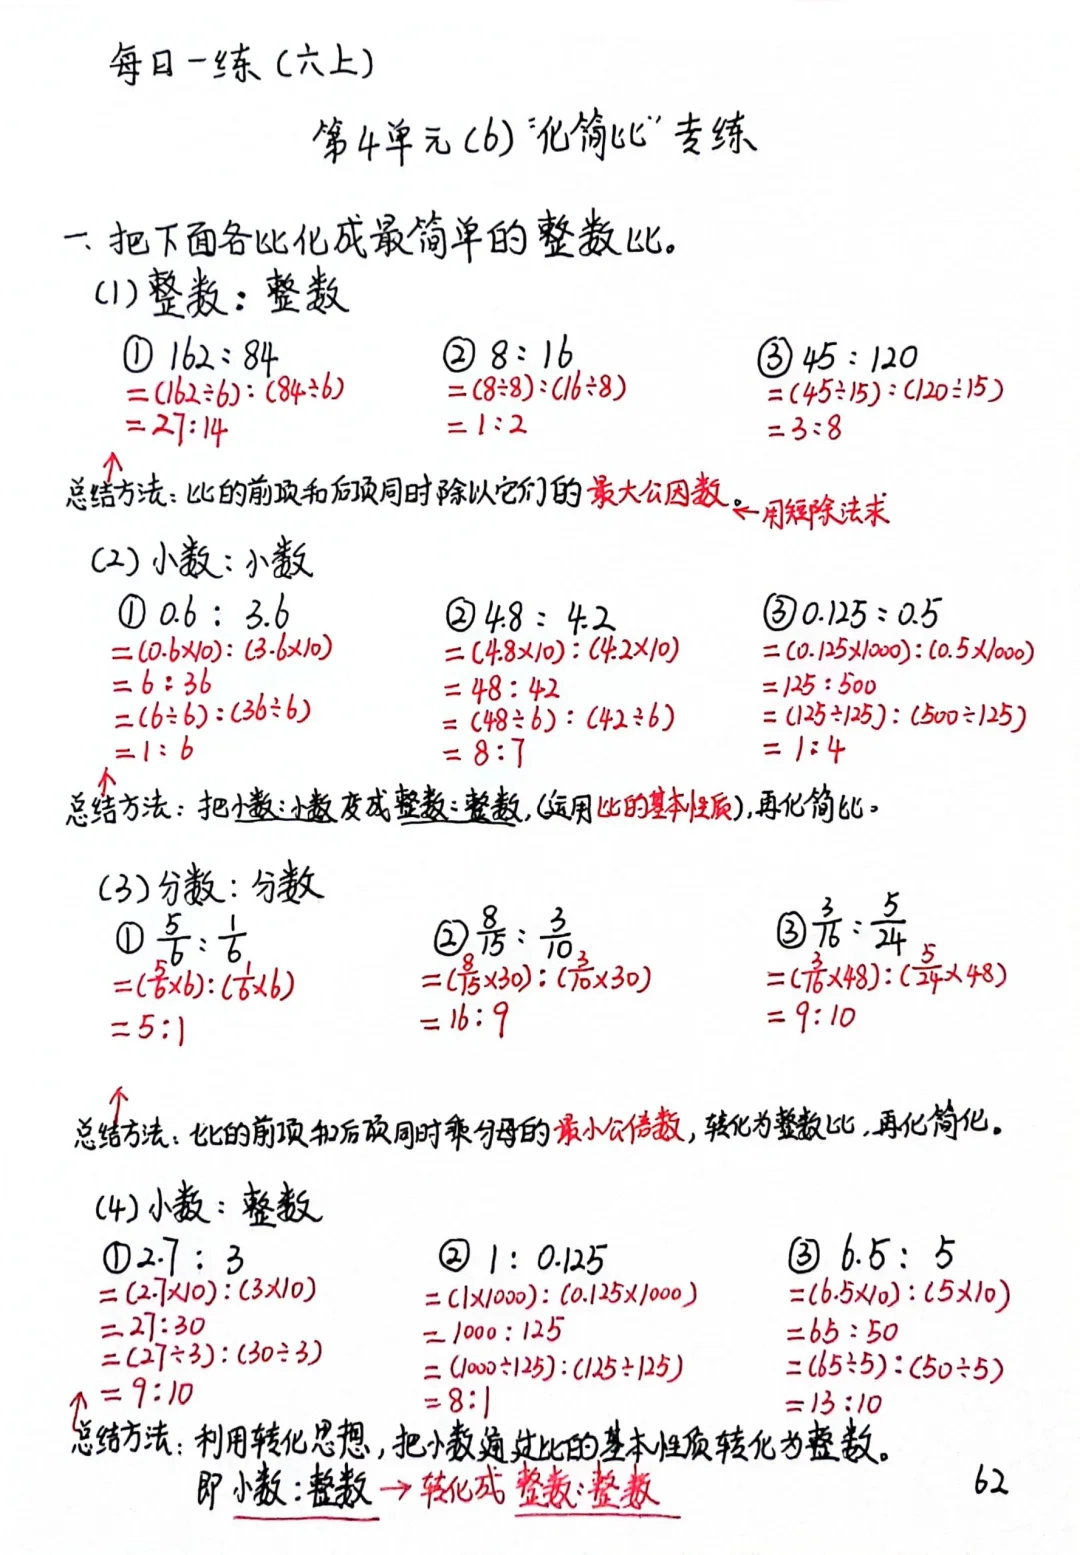 每日一练(六上)
第4单元(6)"化简比"专练
一、把下面各比化成最简单的整数比。
(1)整数:整数
① 162:84 ② 8:16 ③ 45:120
=(162÷6):(84÷6) =(8÷8):(16÷8) =(45÷15):(120÷15)
=27:14 =1:2 =3:8
↑
总结方法:比的前项和后项同时除以它们的最大公因数。←用短除法求
(2)小数:小数
① 0.6:3.6 ② 4.8:4.2 ③ 0.125:0.5
=(0.6×10):(3.6×10) =(4.8×10):(4.2×10) =(0.125×1000):(0.5×1000)
=6:36 =48:42 =125:500
=(6÷6):(36÷6) =(48÷6):(42÷6) =(125÷125):(500÷125)
=1:6 =8:7 =1:4
↑
总结方法:把小数:小数变成整数:整数,(运用比的基本性质),再化简比。
(3)分数:分数
① 5/6:1/6 ② 8/15:3/10 ③ 3/16:5/24
=(5/6×6):(1/6×6) =(8/15×30):(3/10×30) =(3/16×48):(5/24×48)
=5:1 =16:9 =9:10
↑
总结方法:比的前项和后项同时乘分母的最小公倍数,转化为整数比,再化简化。
(4)小数:整数
① 2.7:3 ② 1:0.125 ③ 6.5:5
=(2.7×10):(3×10) =(1×1000):(0.125×1000) =(6.5×10):(5×10)
=27:30 =1000:125 =65:50
=(27÷3):(30÷3) =(1000÷125):(125÷125) =(65÷5):(50÷5)
=9:10 =8:1 =13:10
↑
总结方法:利用转化思想,把小数通过比的基本性质转化为整数。
即小数:整数→转化成整数:整数
62